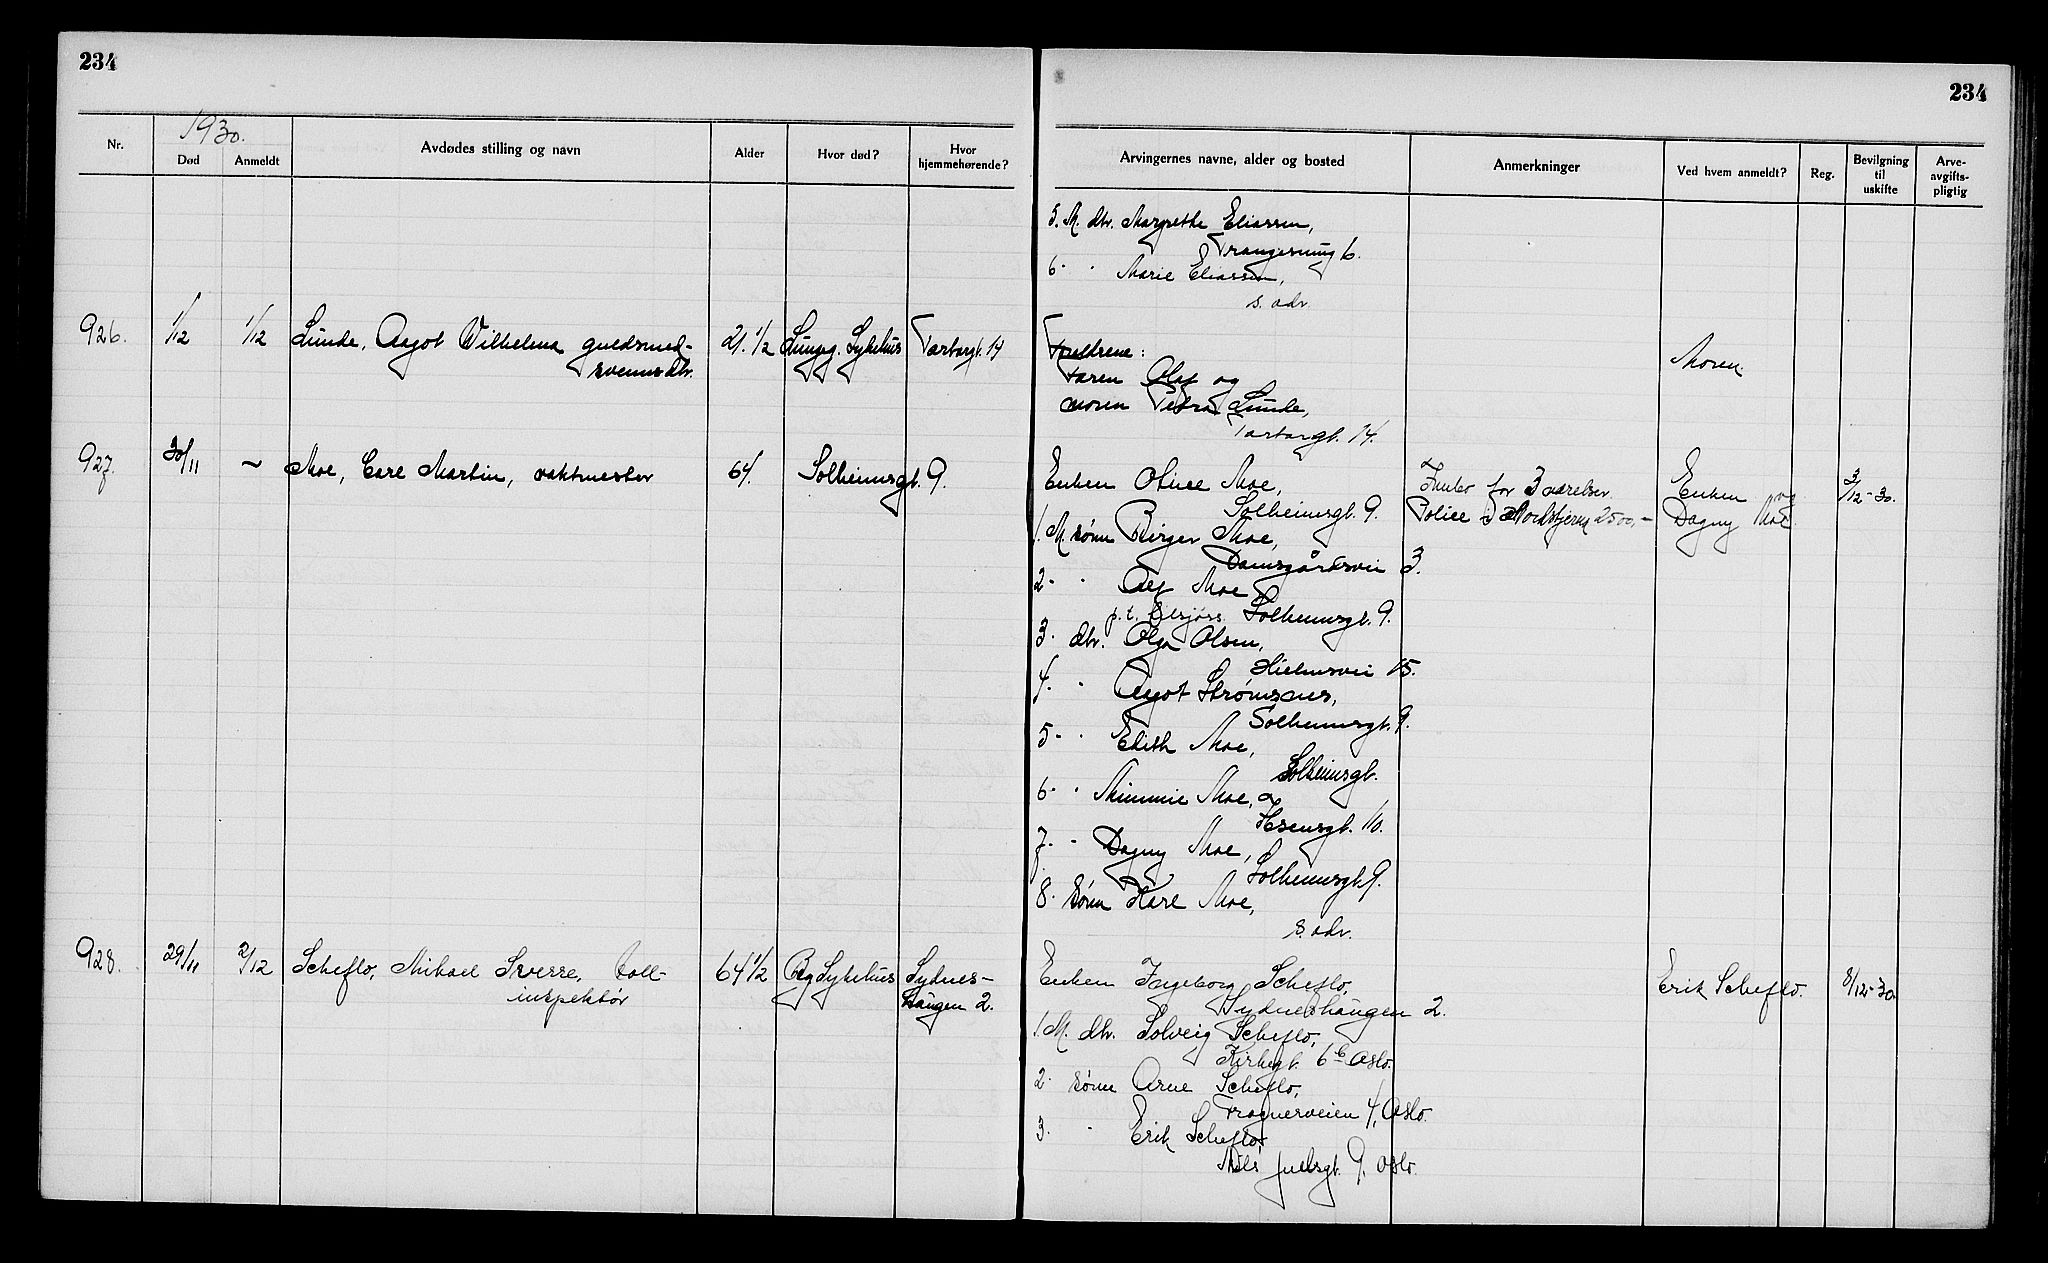 234
234
1930.
Nr.
Død
Anmeldt
Avdødes stilling og navn
Alder
Hvor død?
Hvor hjemmehørende?
Arvingernes navne, alder og bosted
Anmerkninger
Ved hvem anmeldt?
Reg.
Bevilgning til uskifte
Arve-avgifts-pligtig
5. M. dtr. Margrethe Eliassen,
6.
6 - " Marie Eliassen,
s. adr.
926. 1/12 1/12 Lunde, Aagot Vilhelma guldsmed- 21.1/2 Lungeg. Sykehus Tartargt. 14
svenns dtr.
Foreldrene:
Faren Olaf og
moren Petra Lunde,
Tartargt. 14.
Moren.
927. 30/11 ~ Moe, Carl Martin, vaktmester 64. Solheimsgt. 9.
Enken Oline Moe,
Solheimsgt. 9.
Innbo for 3 værelser.
Police i Nordstjernen 2500,-
Enken og
Dagny Moe.
3/12-30.
1. M. sønn Birger Moe,
Damsgårdsvei 3.
2 - " Alf Moe
p.t. tilsjøss Solheimsgt. 9.
3. dtr. Olga Olsen,
15.
4. " Aagot Strømsnes,
Solheimsgt. 9.
5 - " Edith Moe,
Solheimsgt.
6 - " Mimmie Moe,
10.
7. - " Dagny Moe,
Solheimsgt. 9.
8. sønn Kare Moe,
s. adr.
928. 29/11 2/12 Scheflo, Mikael Sverre, toll- 64 1/2 Bg Sykehus Sydnes-
inspektør
haugen 2.
Enken Ingeborg Scheflo,
Sydneshaugen 2.
Erik Scheflo. 8/12-30
1. M. dtr. Solveig Scheflo,
Kirkegt. 6 Oslo.
2. sønn Arne Scheflo,
Frognerveien 4, Oslo.
3. " Erik Scheflo,
Niels Juelsgt. 9. Oslo.